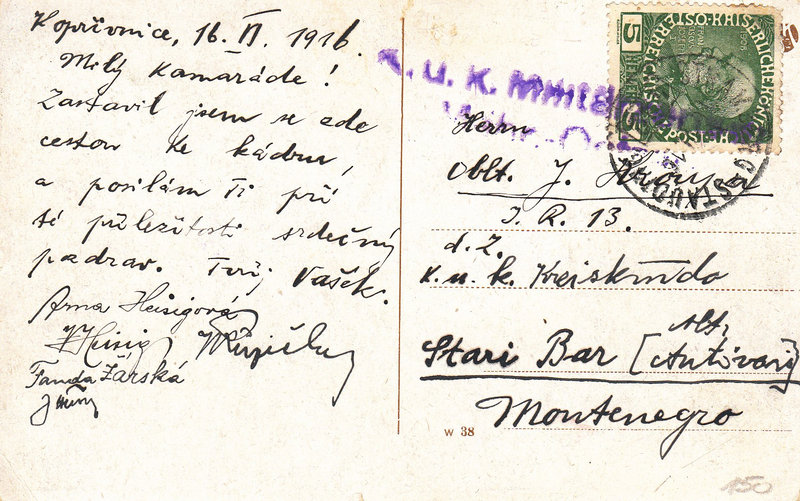 Kopřivnice, 16. VI. 1916.
Milý kamaráde!
Zastavil jsem se zde
cestou ke kádru,
a posílám Ti při
té příležitosti srdečný
pozdrav. Tvůj Vašek.
Anna Heisigová
Heisig
Fanda Žárská
K. u. K. Militär
5
5
HELLER
KAISERLICHEKÖNI
OSTERREICHIS
POST
Herrn
Oblt. J. Kroupa
I. R. 13.
d. Z.
k. u. k. Kreiskmdo
Alt,
Stari Bar [Antivari]
Montenegro
W 38
150